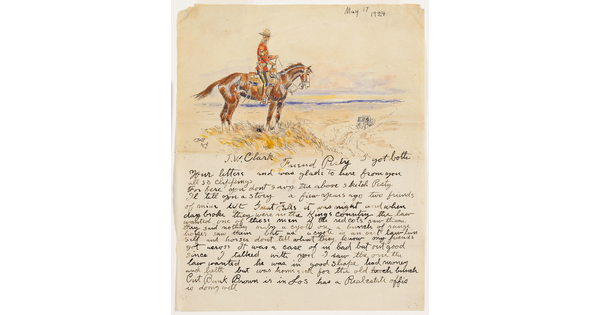 May 17 1924
J.W. Clark
Friend Pety I got both
Your letters and was glade to here from you
all so clippings
For fere you dont savy the above sketch Pety
I'll tell you a story a few years ago two friends
of mine left Great Falls it was night and when
day broke they were in the Kings country the law
wanted one of these men if the red cots saw them
they said nothing only a cyote and a bunch of rang
horses saw them but as a cyote is an out law him
self and horses dont tell what they know my friends
got across It was a case of in bad but out good
since I talked with you I saw the one the
law wanted he was in good shape had money
and helth but was homesick for the old bunch
Curt Buck Brown is in Los has a Real estate office
is doing well